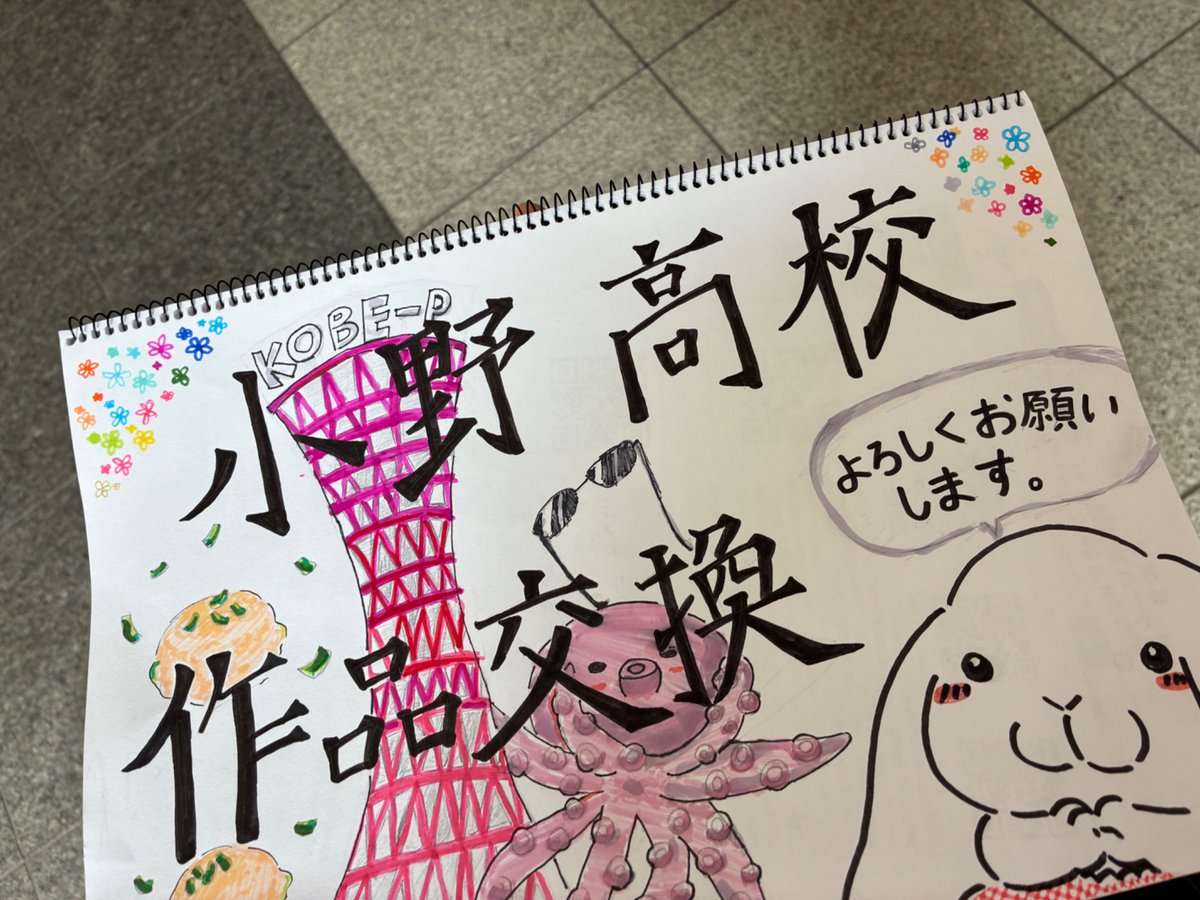 KOBE-P
小野高校
作品交換
よろしくお願い
します。